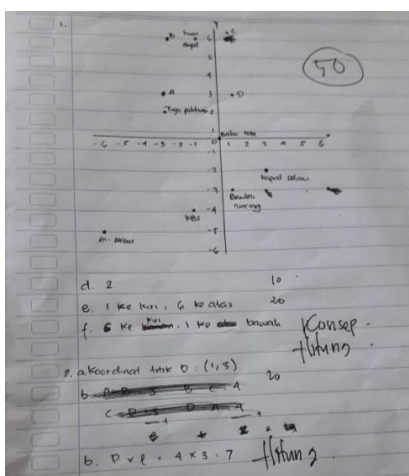 1.
Y
6
B
C
5
4
A
3
D
Tugu pahlawan
2
1
Balai Kota
-6 -5 -4 -3 -2 -1 0 1 2 3 4 5 6
-1
-2
Kapal selam
-3
-4
KBS
Al-Akbar
-5
-6
50
d. 2
10
e. 1 ke kiri, 6 ke atas
20
f. 6 ke kiri, 1 ke bawah
Konsep -
Hitung
2. a. Koordinat titik D : (1,3)
20
b. P x l = 4 x 3 = 7
Hitung